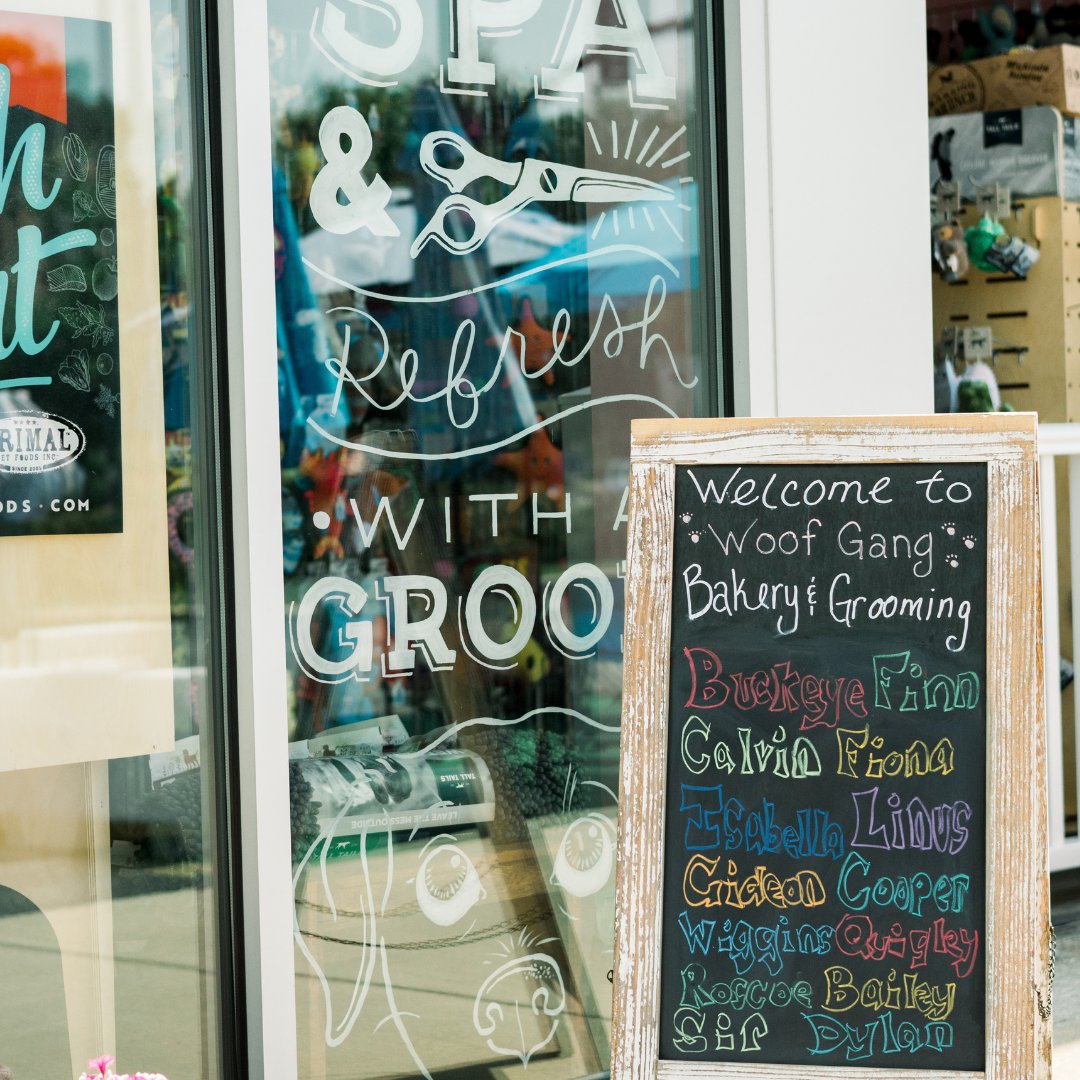 SPA
&
Refresh
• WITH A
GROO
RIMAL
ET FOODS INC
SINCE 2001
ODS · COM
Welcome to
Woof Gang
Bakery & Grooming
Buckeye Finn
Calvin Fiona
Isabella Linus
Gideon Cooper
Wiggins Quigley
Roscoe Bailey
Sir Dylan
TALL TAILS
LEAVE THE MESS OUTSIDE
TALL TAILS